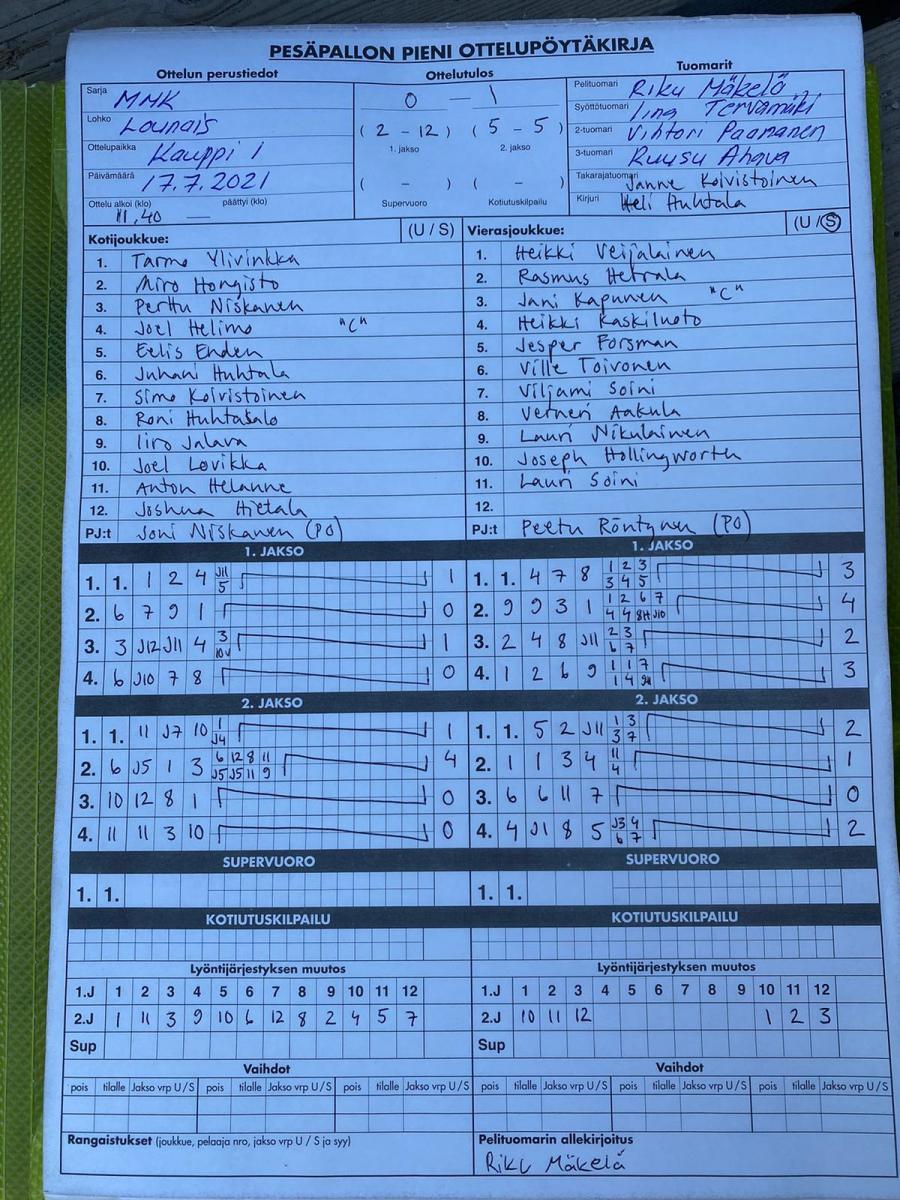 PESÄPALLON PIENI OTTELUPÖYTÄKIRJA
Ottelun perustiedot
Sarja MMK
Lohko Lounais
Ottelupaikka Kauppi 1
Päivämäärä 17.7.2021
Ottelu alkoi (klo) päättyi (klo)
11,40 —
Ottelutulos
0 — 1
( 2 - 12 ) ( 5 - 5 )
1. jakso 2. jakso
( - ) ( - )
Supervuoro Kotiutuskilpailu
Tuomarit
Pelituomari Riku Mäkelä
Syöttötuomari Iina Tervamäki
2-tuomari Vihtori Paananen
3-tuomari Ruusu Ahava
Takarajatuomari Janne Koivistoinen
Kirjuri Heli Huhtala
Kotijoukkue: (U / S)
1. Tarmo Ylivinkka
2. Miro Hongisto
3. Perttu Niskanen
4. Joel Helimo "C"
5. Eelis Enden
6. Juhani Huhtala
7. Simo Koivistoinen
8. Roni Huhtasalo
9. Iiro Jalava
10. Joel Lovikka
11. Anton Helanne
12. Joshua Hietala
PJ:t Joni Niskanen (PO)
Vierasjoukkue: (U / S)
1. Heikki Veijalainen
2. Rasmus Hetrala
3. Jani Kapunen "C"
4. Heikki Kaskiluoto
5. Jesper Forsman
6. Ville Toivonen
7. Viljami Soini
8. Verneri Aakula
9. Lauri Nikulainen
10. Joseph Hollingworth
11. Lauri Soini
12.
PJ:t Peetu Röntynen (PO)
1. JAKSO
1. 1. 1 2 4 J11 1
5
2. 6 7 9 1 0
3. 3 J12 J11 4 3 1
10V
4. 6 J10 7 8 0
1. JAKSO
1. 1. 4 7 8 1 2 3 3
3 4 5
2. 9 9 3 1 1 2 6 7 4
4 4 8H J10
3. 2 4 8 J11 2 3 2
6 7
4. 1 2 6 9 1 1 7 3
1 4
2. JAKSO
1. 1. 11 J7 10 1 1
J4
2. 6 J5 1 3 6 12 8 11 4
J5 J5 11 9
3. 10 12 8 1 0
4. 11 11 3 10 0
2. JAKSO
1. 1. 5 2 J11 1 3 2
3 7
2. 1 1 3 4 11 1
4
3. 6 6 11 7 0
4. 4 J1 8 5 J3 4 2
6 7
SUPERVUORO
1. 1.
SUPERVUORO
1. 1.
KOTIUTUSKILPAILU
KOTIUTUSKILPAILU
Lyöntijärjestyksen muutos
1.J 1 2 3 4 5 6 7 8 9 10 11 12
2.J 1 11 3 9 10 6 12 8 2 4 5 7
Sup
Lyöntijärjestyksen muutos
1.J 1 2 3 4 5 6 7 8 9 10 11 12
2.J 10 11 12 1 2 3
Sup
Vaihdot
pois tilalle Jakso vrp U / S pois tilalle Jakso vrp U / S pois tilalle Jakso vrp U / S
Vaihdot
pois tilalle Jakso vrp U / S pois tilalle Jakso vrp U / S pois tilalle Jakso vrp U / S
Rangaistukset (joukkue, pelaaja nro, jakso vrp U / S ja syy)
Pelituomarin allekirjoitus
Riku Mäkelä